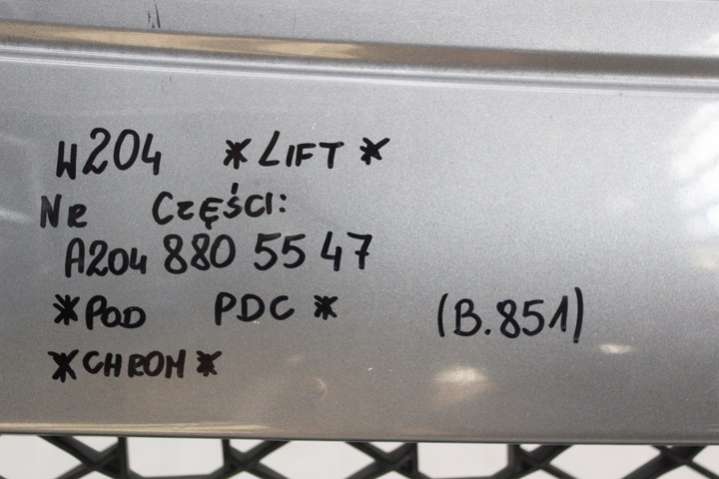 W204 *LIFT*
NR CZĘŚCI:
A204 880 55 47
*POD PDC* (B.851)
*CHROM*